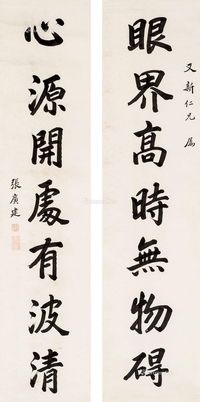 又新仁兄属
眼界高時無物礙
心源開處有波清
張廣建